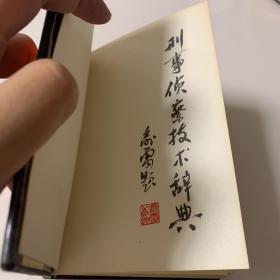 刑事侦察技术辞典
俞雷题